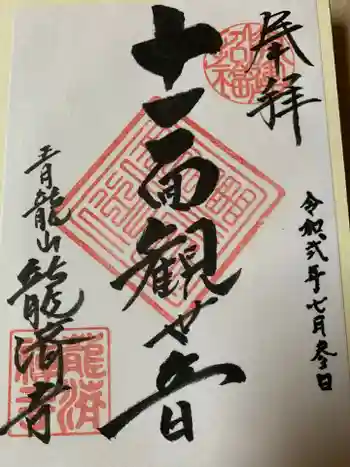 奉拝
令和弐年七月参日
十一面観世音
青龍山龍済寺